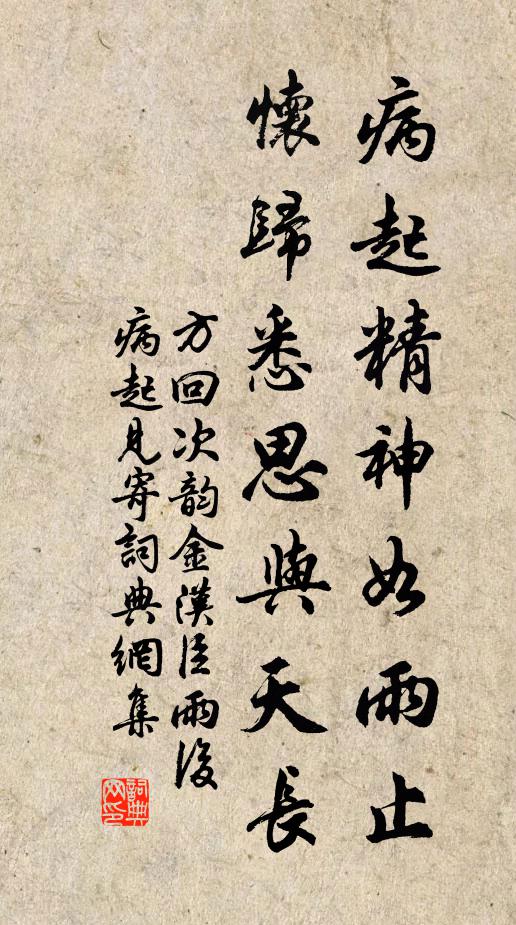 病起精神如雨止
懷歸悉思與天長
方回次韵金漢臣雨後
病起見寄詞典網集
詞典網印